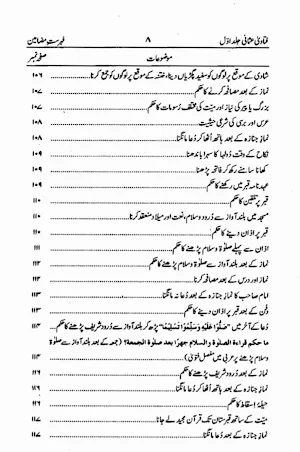 فتاویٰ عثمانی جلد اوّل ۸ فہرستِ مضامین
موضوعات صفحہ نمبر
شادی کے موقع پر لوگوں کو سفید پگڑیاں دینا، ختنہ کے موقع پر لوگوں کو جمع کرنا ۱۰۶
نماز کے بعد مصافحہ کرنے کا حکم ۱۰۷
بزرگ یا پیر کی نیاز اور میّت کی مختلف رُسومات کا حکم ۱۰۷
عرس اور برسی کی شرعی حیثیت ۱۰۸
نمازِ جنازہ کے بعد ہاتھ اُٹھا کر دُعا مانگنا ۱۰۸
نکاح کے وقت دُولہا کا سہرا باندھنا ۱۰۹
کھانا سامنے رکھ کر فاتحہ پڑھنا ۱۰۹
عہد نامہ قبر میں رکھنے کا حکم ۱۰۹
قبر پر تلقین کا حکم ۱۱۰
مسجد میں بلند آواز سے دُرود و سلام، نعت اور میلاد منعقد کرنا ۱۱۰
قبر پر اذان دینے کا حکم ۱۱۰
اذان سے پہلے صلوٰۃ و سلام پڑھنے کا حکم ۱۱۱
نماز کے بعد بلند آواز سے صلوٰۃ و سلام پڑھنے کا حکم ۱۱۲
نماز اور درس کے بعد مصافحہ کرنا ۱۱۳
امام صاحب کا نمازِ جنازہ کے بعد دُعا نہ مانگنا ۱۱۳
دفن کے بعد قبر پر اذان دینے کا حکم ۱۱۳
دُعا کے آخر میں "صَلُّوْا عَلَيْهِ وَسَلِّمُوْا تَسْلِيْمًا" پڑھ کر بلند آواز سے دُرود شریف پڑھنے کا حکم
ما حكم قراءة الصلوة والسلام جهرًا بعد صلوة الجمعة؟ (جمعہ کے بعد بلند آواز سے صلوٰۃ
وسلام پڑھنے پر عربی میں مفصل فتویٰ) ۱۱۳
نماز کے بعد دُرود شریف پڑھنے کا حکم
نمازِ جنازہ کے بعد ہاتھ اُٹھا کر دُعا مانگنا ۱۱۶
حیلۂ اسقاط کا حکم ۱۱۶
میّت کے ساتھ قبرستان تک قرآن مجید لے جانا ۱۱۷
نمازِ جنازہ کے بعد دُعا مانگنا ۱۱۷